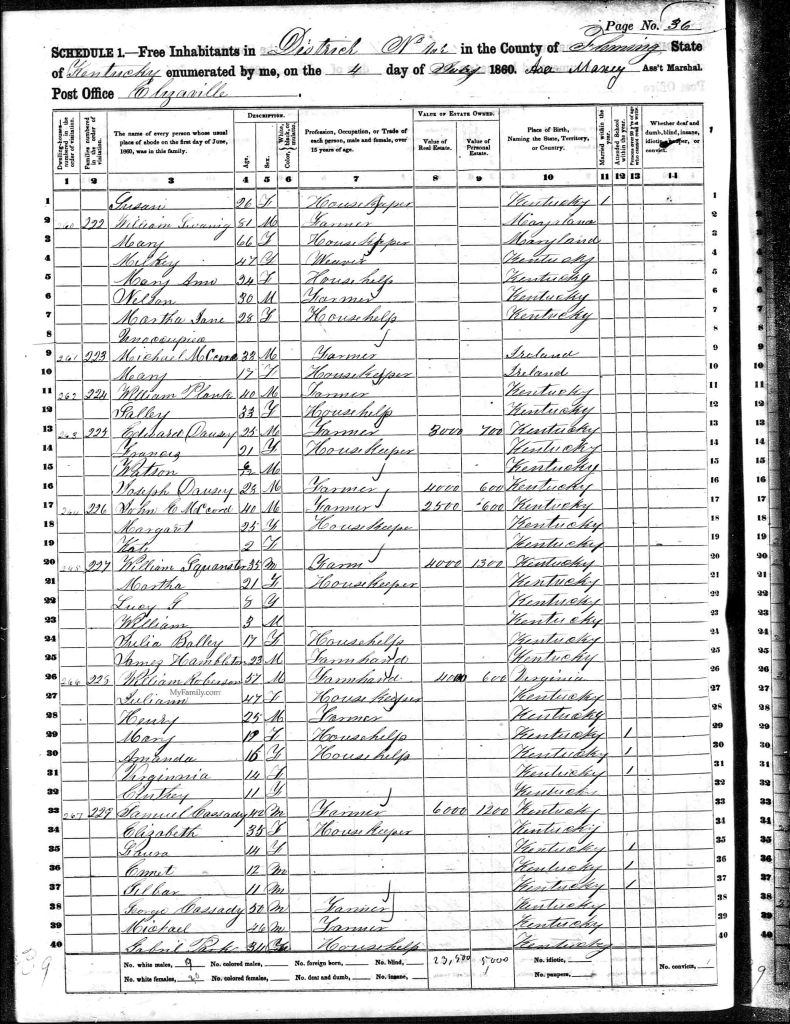 Page No. 36
SCHEDULE 1.—Free Inhabitants in District No in the County of Fleming State
of Kentucky enumerated by me, on the 4 day of July 1860. Asa Maxey Ass't Marshal.
Post Office Elizaville
DESCRIPTION. VALUE OF ESTATE OWNED.
Dwelling-houses—numbered in the order of visitation.
Families numbered in the order of visitation.
The name of every person whose usual place of abode on the first day of June, 1860, was in this family.
Age.
Sex.
Color, White, black, or mulatto.
Profession, Occupation, or Trade of each person, male and female, over 15 years of age.
Value of Real Estate.
Value of Personal Estate.
Place of Birth, Naming the State, Territory, or Country.
Married within the year.
Attended School within the year.
Persons over 20 y'rs of age who cannot read & write.
Whether deaf and dumb, blind, insane, idiotic, pauper, or convict.
1 2 3 4 5 6 7 8 9 10 11 12 13 14
1 Susan 26 F Housekeeper Kentucky 1 1
2 260 222 William 81 M Farmer Maryland 2
3 Mary 66 F Housekeeper Maryland 3
4 Milkey 47 F Weaver Kentucky 4
5 Mary Ann 34 F Househelp Kentucky 5
6 Nelson 30 M Farmer Kentucky 6
7 Martha Jane 28 F Househelp Kentucky 7
8 Unoccupied 8
9 261 223 Michael McCord 32 M Farmer Ireland 9
10 Mary 17 F Housekeeper Ireland 10
11 262 224 William Plank 40 M Farmer Kentucky 11
12 Salley 33 F Househelp Kentucky 12
13 263 225 Edward Dausey 25 M Farmer 3000 700 Kentucky 13
14 Francis 21 F Housekeeper Kentucky 14
15 Watson M Kentucky 15
16 Joseph Dausey 28 M Farmer 4000 600 Kentucky 16
17 264 226 John McCord 40 M Farmer 2500 600 Kentucky 17
18 Margaret 25 F Housekeeper Kentucky 18
19 Kate 2 F Kentucky 19
20 265 227 William 35 M Farm 4000 1300 Kentucky 20
21 Martha 21 F Housekeeper Kentucky 21
22 Lucy 8 F Kentucky 22
23 William 3 M Kentucky 23
24 Julia Balley 17 F Househelp Kentucky 24
25 James Hambleton 23 M Farmhand Kentucky 25
26 266 228 William Roberson 57 M Farmhand 4000 600 Virginia 26
MyFamily.com
27 Juliann 47 F Housekeeper Kentucky 27
28 Henry 25 M Farmer Kentucky 28
29 Mary F Househelp Kentucky 1 29
30 Amanda 16 F Househelp Kentucky 1 30
31 Virginnia 14 F Kentucky 1 31
32 Cinthey 11 F Kentucky 32
33 267 229 Samuel Cassady 42 M Farmer 6000 1200 Kentucky 33
34 Elizabeth 35 F Housekeeper Kentucky 34
35 Laura 14 F Kentucky 1 35
36 Emet 12 M Kentucky 1 36
37 11 M Kentucky 1 37
38 George Cassady 50 M Farmer Kentucky 38
39 Michael 46 M Farmer Kentucky 39
40 Park F Househelp Kentucky 40
No. white males, 9 No. colored males, No. foreign born, No. blind, 23,500 5000 No. idiotic, No. convicts,
No. white females, 20 No. colored females, No. deaf and dumb, No. insane, No. paupers,